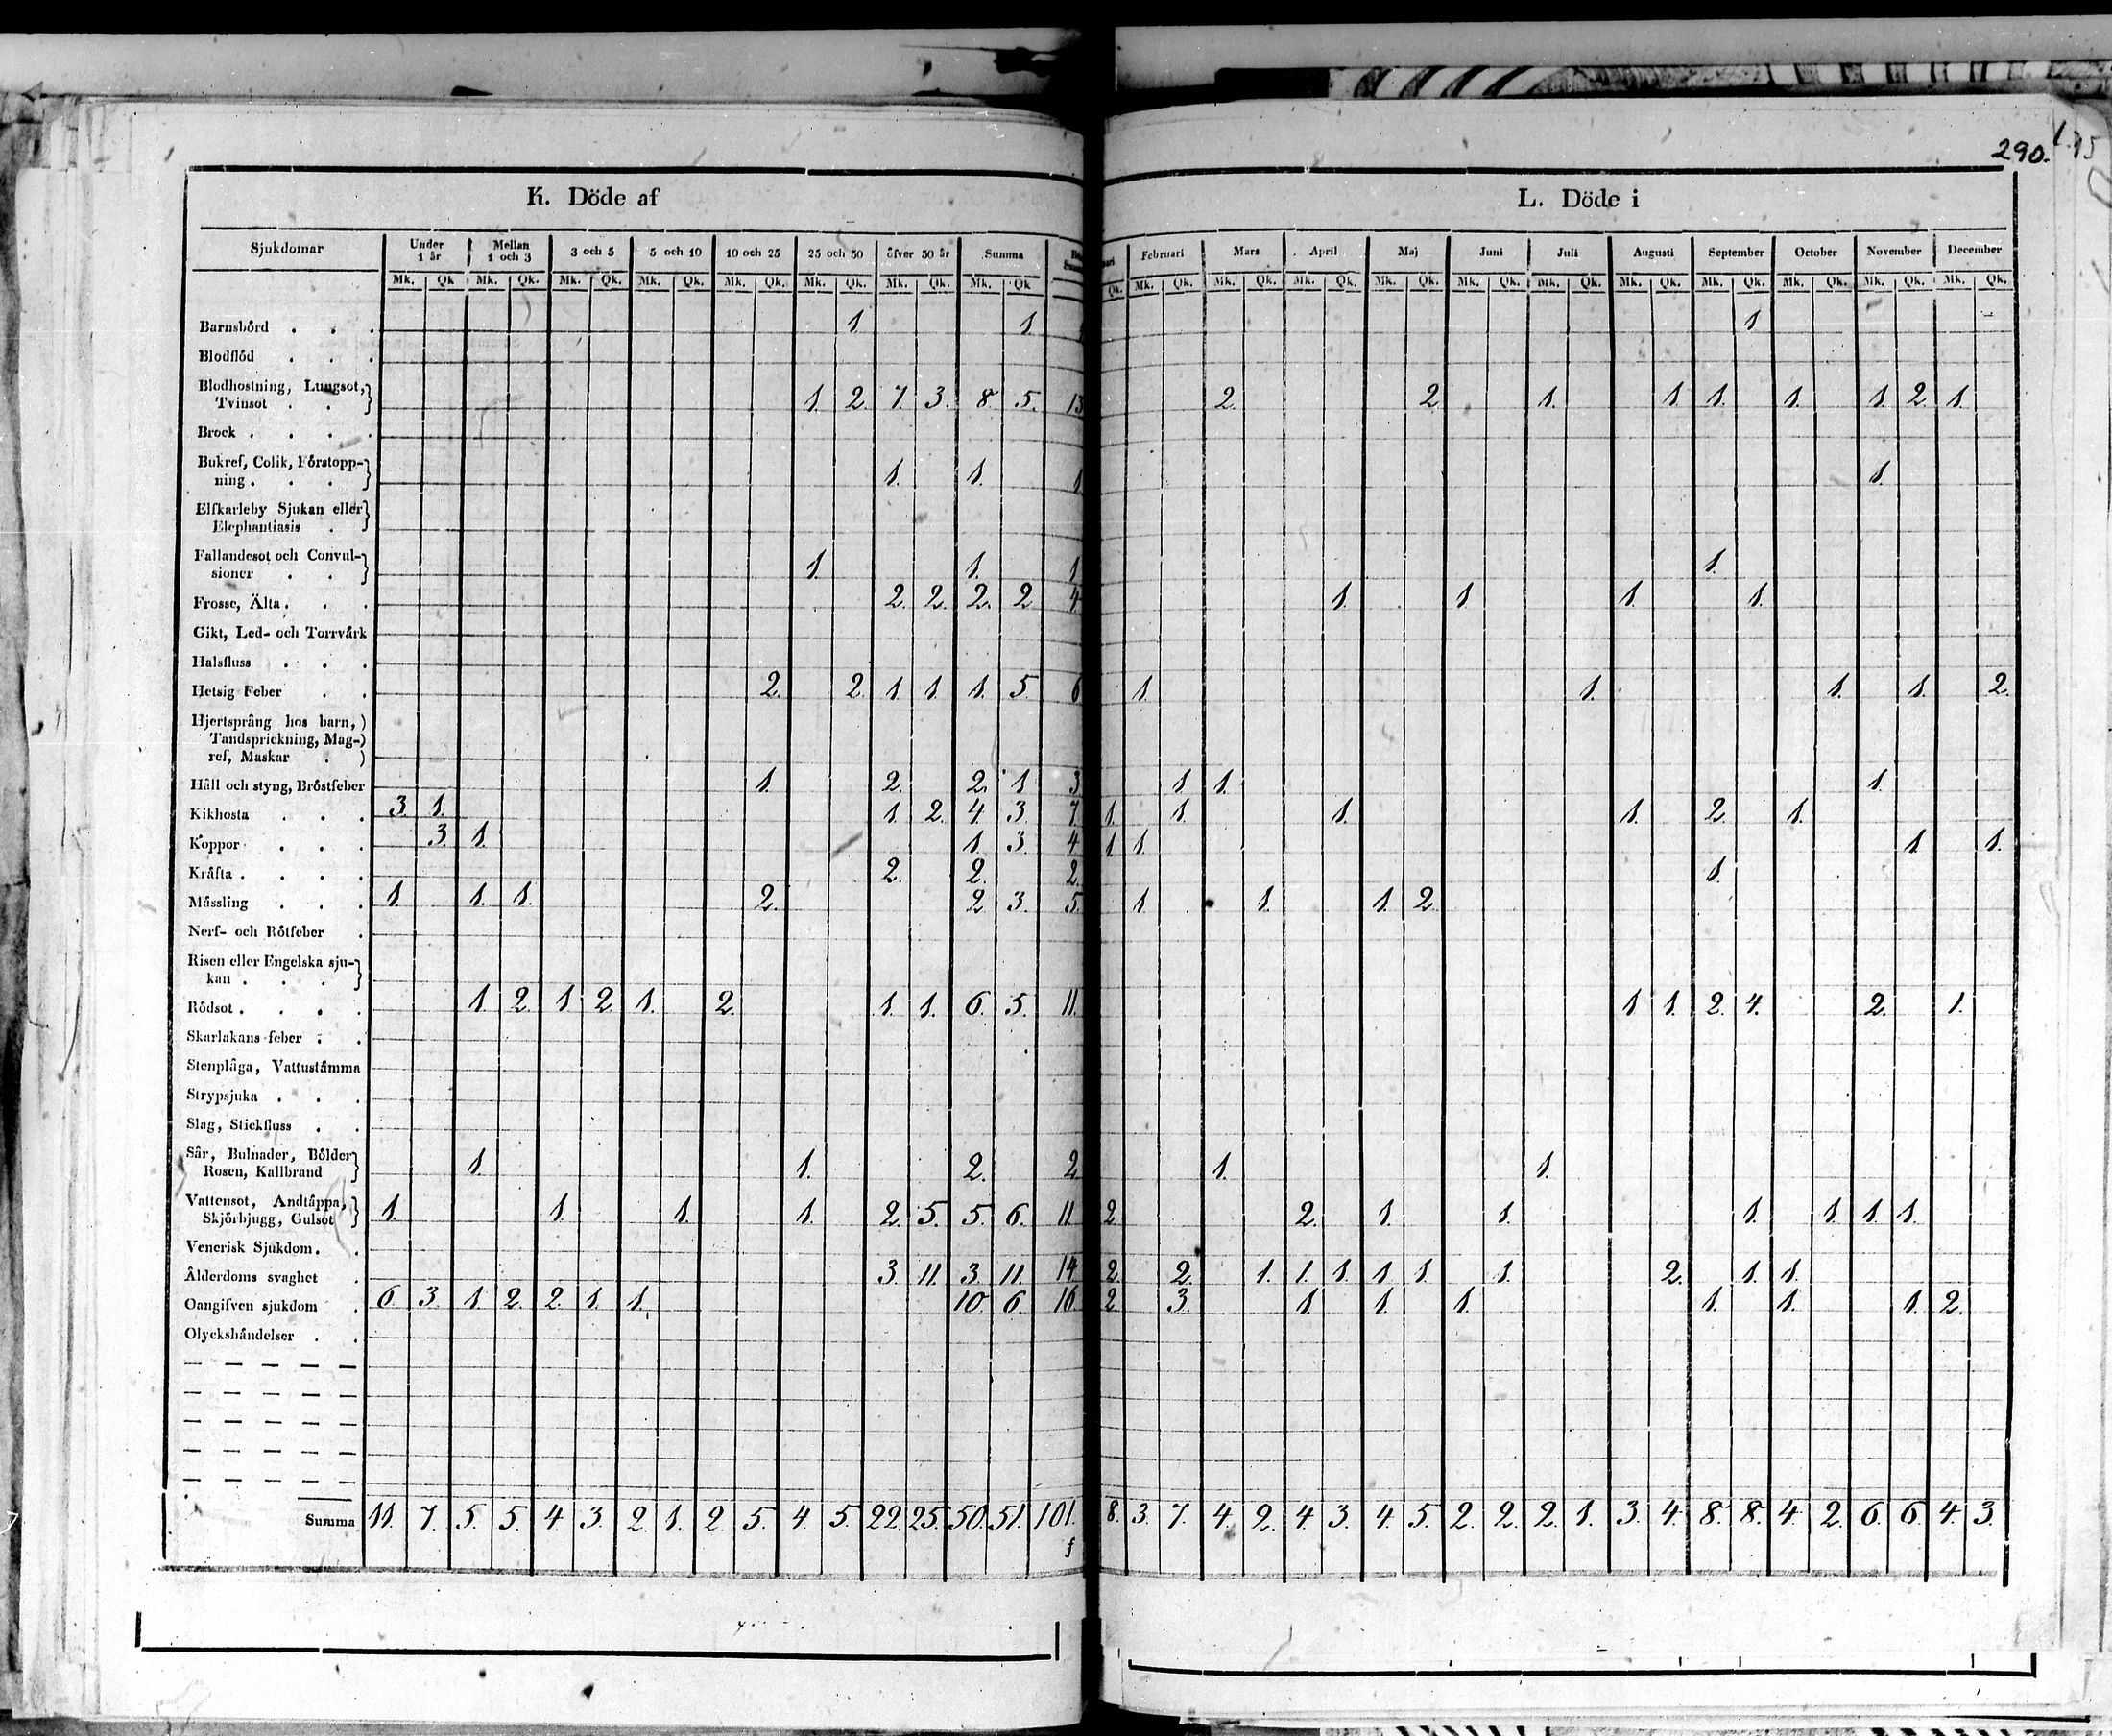 290.
K. Döde af
L. Döde i
Sjukdomar Under 1 år Mellan 1 och 3 3 och 5 5 och 10 10 och 25 25 och 50 öfver 50 år Summa
Februari Mars April Maj Juni Juli Augusti September October November December
Mk. Qk Mk. Qk. Mk. Qk. Mk. Qk. Mk. Qk. Mk. Qk. Mk. Qk. Mk. Qk
Qk. Mk. Qk. Mk. Qk. Mk. Qk. Mk. Qk. Mk. Qk. Mk. Qk. Mk. Qk. Mk. Qk. Mk. Qk. Mk. Qk. Mk. Qk.
Barnsbörd . . . 1 1. 1
Blodflöd . . .
Blodhostning, Lungsot,
Tvinsot . . 1. 2. 7. 3. 8. 5. 13 2. 2 1. 1 1. 1. 1. 2. 1.
Brock . . . .
Bukref, Colik, Förstopp-
ning . . . 1. 1. 1 1.
Elfkarleby Sjukan eller
Elephantiasis .
Fallandesot och Convul-
sioner . . 1. 1. 1 1.
Frosse, Älta . . . 2. 2. 2. 2 4 1. 1. 1. 1.
Gikt, Led- och Torrvärk
Halsfluss . . .
Hetsig Feber . . 2. 2. 1 1. 1. 5. 6 1. 1. 1. 1. 2.
Hjertsprång hos barn,
Tandsprickning, Mag-
ref, Maskar .
Håll och styng, Bröstfeber 1. 2. 2. 1 3 1 1. 1
Kikhosta . . . 3. 1. 1 2. 4. 3. 7. 1. 1. 1. 1. 2. 1.
Koppor . . . 3. 1. 1. 3. 4 1 1. 1. 1.
Kräfta . . . . 2. 2. 2. 1.
Mässling . . . 1. 1. 1. 2. 2 3. 5. 1 1. 1. 2.
Nerf- och Rötfeber .
Risen eller Engelska sju-
kan . . .
Rödsot . . . . 1 2. 1 2. 1. 2. 1. 1. 6. 5. 11. 1 1. 2. 4. 2. 1.
Skarlakans-feber . .
Stenplåga, Vattustämma
Strypsjuka . . .
Slag, Stickfluss . .
Sår, Bulnader, Bölder
Rosen, Kallbrand 1. 1. 2. 2 1. 1.
Vattensot, Andtäppa,
Skjörbjugg, Gulsot 1. 1. 1. 1. 2. 5. 5. 6. 11 2. 2. 1. 1. 1. 1. 1. 1.
Venerisk Sjukdom . .
Ålderdoms svaghet . 3. 11. 3. 11. 14 2. 2. 1. 1. 1. 1. 1. 1. 2. 1. 1.
Oangifven sjukdom . 6. 3. 1 2. 2. 1. 1. 10. 6. 16 2. 3. 1. 1. 1. 1. 1. 1. 2.
Olyckshändelser . .
Summa 11. 7. 5. 5. 4. 3. 2. 1. 2. 5. 4. 5. 22. 25. 50. 51. 101. 8. 3. 7. 4. 2. 4. 3. 4. 5. 2. 2. 2. 1. 3. 4. 8. 8. 4. 2. 6. 6. 4. 3.